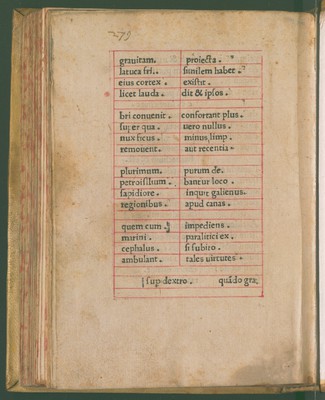 279
grauitam. proiecta.
latuca fri.. similem habet.
eius cortex. existit.
licet lauda. dit & ipsos.
bri conuenit. confortant plus.
super qua. uero nullus.
nux ficus. minus, simp.
remouent. aut recentia.
plurimum. purum de.
petrosillium. bantur loco.
sapidiore. inquit galienus.
regionibus. apud canas.
quem cum. impediens.
marini. paralitici ex.
cephalus. si subito.
ambulant. tales uirtutes.
sup dextro. quãdo gra: